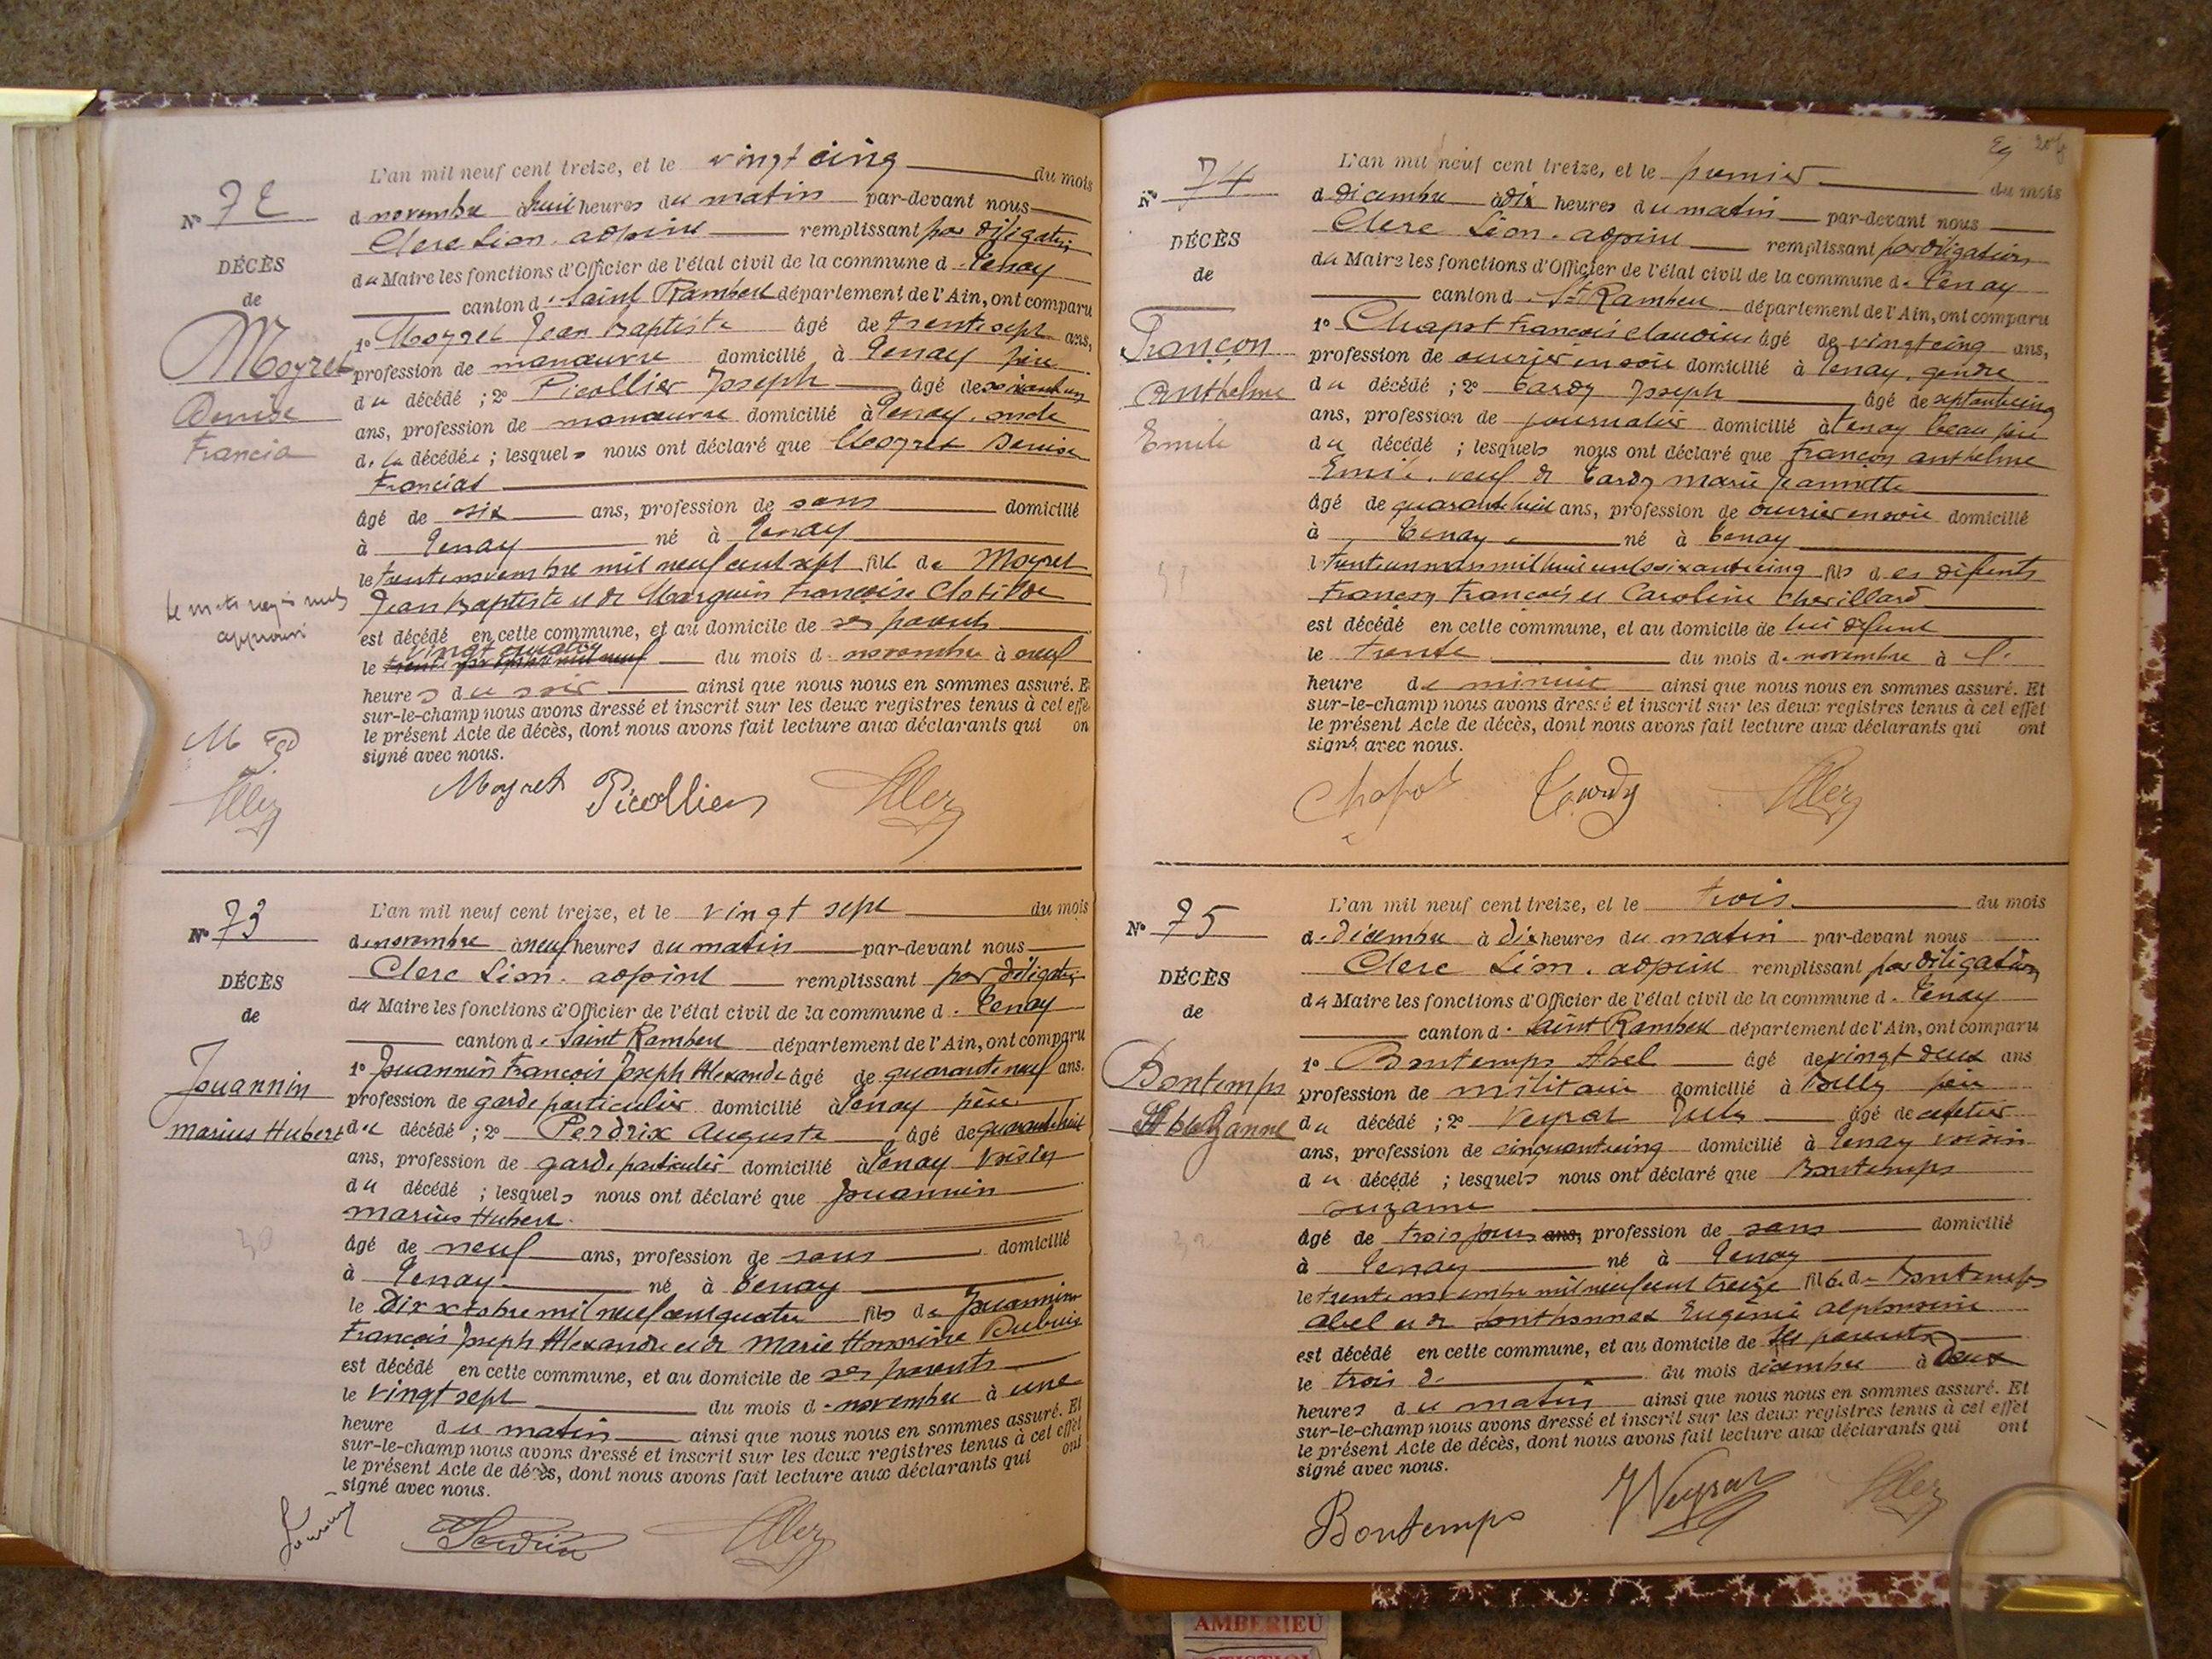 L'an mil neuf cent treize, et le vingt cinq du mois
N° 72
d novembre à huit heures du matin par-devant nous
Clerc Léon. adjoint remplissant par délégation
DÉCÈS
du Maire les fonctions d'Officier de l'état civil de la commune d. Tenay
de
canton d. Saint Rambert département de l'Ain, ont comparu
Moyret
Denise
Francia
1° Moyret Jean Baptiste âgé de trente sept ans,
profession de manœuvre domicilié à Tenay père
du décédé ; 2° Picollier Joseph âgé de
ans, profession de manœuvre domicilié à Tenay, oncle
d. la décédée ; lesquels nous ont déclaré que Moyret Denise
Francia
âgé de six ans, profession de sans domicilié
à Tenay né à Tenay
le trente novembre mil neuf cent sept fille de Moyret
Jean Baptiste et de Marguin Françoise Clotilde
approuvé
est décédé en cette commune, et au domicile de ses parents
vingt quatre
le du mois d. novembre à neuf
heures du soir ainsi que nous nous en sommes assuré. E
sur-le-champ nous avons dressé et inscrit sur les deux registres tenus à cet effe
le présent Acte de décès, dont nous avons fait lecture aux déclarants qui on
signé avec nous.
M P
Moyret Picollier
L'an mil neuf cent treize, et le vingt sept du mois
N° 73
d. novembre à neuf heures du matin par-devant nous
Clerc Léon. adjoint remplissant par délégation
DÉCÈS
du Maire les fonctions d'Officier de l'état civil de la commune d. Tenay
de
canton d. Saint Rambert département de l'Ain, ont comparu
Jouannin
Marius Hubert
1° Jouannin François Joseph Alexandre âgé de quarante neuf ans.
profession de garde particulier domicilié à Tenay père
du décédé ; 2° Perdrix Auguste âgé de quarante huit
ans, profession de garde particulier domicilié à Tenay voisin
du décédé ; lesquels nous ont déclaré que Jouannin
Marius Hubert.
30
âgé de neuf ans, profession de sans domicilié
à Tenay né à Tenay
le dix octobre mil neuf cent quatre fils de Jouannin
François Joseph Alexandre et de Marie Honorine Dubuis
est décédé en cette commune, et au domicile de ses parents
le vingt sept du mois d. novembre à une
heure du matin ainsi que nous nous en sommes assuré. Et
sur-le-champ nous avons dressé et inscrit sur les deux registres tenus à cet effet
le présent Acte de décès, dont nous avons fait lecture aux déclarants qui ont
signé avec nous.
L'an mil neuf cent treize, et le premier du mois
N° 74
d décembre à dix heures du matin par-devant nous
Clerc Léon. adjoint remplissant par délégation
DÉCÈS
du Maire les fonctions d'Officier de l'état civil de la commune d. Tenay
de
canton d. St Rambert département de l'Ain, ont comparu
Françon
Anthelme
Emile
1° Chapot François Claudius âgé de vingt cinq ans,
profession de ouvrier en soie domicilié à Tenay, gendre
du décédé ; 2° Tardy Joseph âgé de septante cinq
ans, profession de journalier domicilié à Tenay beau père
du décédé ; lesquels nous ont déclaré que Françon Anthelme
Emile, veuf de Tardy Marie Jeannette
âgé de quarante huit ans, profession de ouvrier en soie domicilié
à Tenay né à Tenay
le trente un mars mil huit cent soixante cinq fils des défunts
Françon François et Caroline Chevillard
31
est décédé en cette commune, et au domicile de lui défunt
le trente du mois d. novembre à l.
heure de minuit ainsi que nous nous en sommes assuré. Et
sur-le-champ nous avons dressé et inscrit sur les deux registres tenus à cet effet
le présent Acte de décès, dont nous avons fait lecture aux déclarants qui ont
signé avec nous.
Chapot Tardy
L'an mil neuf cent treize, et le trois du mois
N° 75
d. décembre à dix heures du matin par-devant nous
Clerc Léon. adjoint remplissant par délégation
DÉCÈS
du Maire les fonctions d'Officier de l'état civil de la commune d. Tenay
de
canton d. Saint Rambert département de l'Ain, ont comparu
Bontemps
1° Bontemps Abel âgé de vingt deux ans
profession de militaire domicilié à Belley père
du décédé ; 2° Veyrat Jules âgé de cafetier
ans, profession de cinquante cinq domicilié à Tenay voisin
du décédé ; lesquels nous ont déclaré que Bontemps
Suzanne
32
âgé de trois jours ans, profession de sans domicilié
à Tenay né à Tenay
le trente novembre mil neuf cent treize fille de Bontemps
Abel et de Sonthonnax Eugénie Alphonsine
est décédé en cette commune, et au domicile de ses parents
le trois d du mois décembre à deux
heures du matin ainsi que nous nous en sommes assuré. Et
sur-le-champ nous avons dressé et inscrit sur les deux registres tenus à cet effet
le présent Acte de décès, dont nous avons fait lecture aux déclarants qui ont
signé avec nous.
Bontemps JVeyrat
AMBERIEU